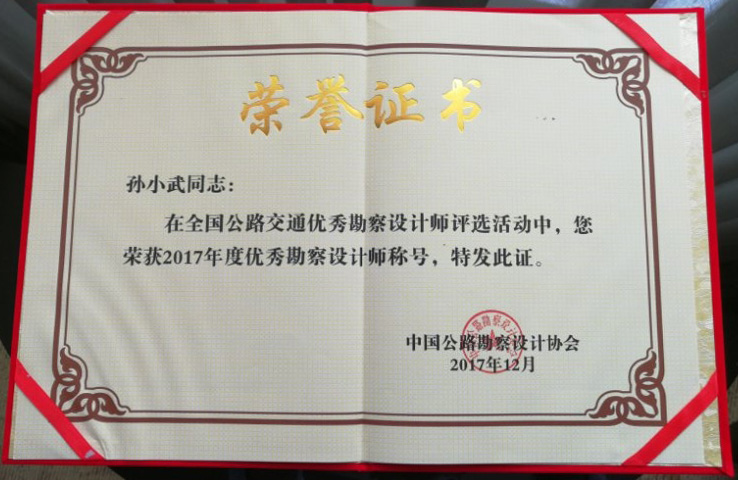 荣誉证书
孙小武同志：
在全国公路交通优秀勘察设计师评选活动中，您
荣获2017年度优秀勘察设计师称号，特发此证。
中国公路勘察设计协会
2017年12月